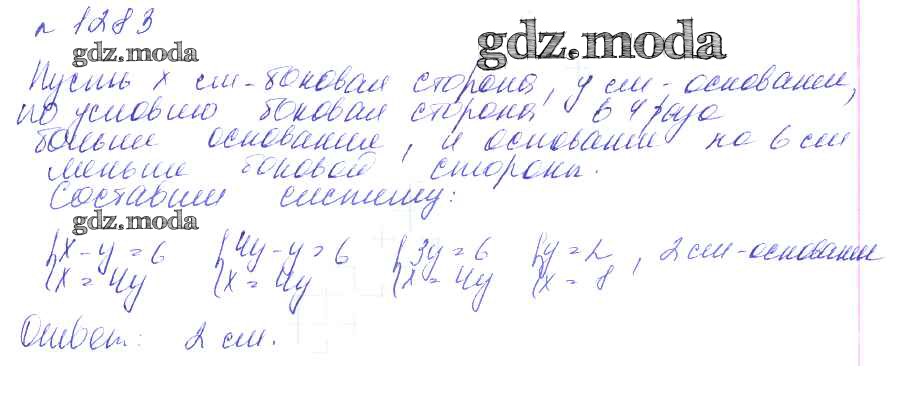 № 1283
gdz.moda
gdz.moda
Пусть x см - боковая сторона, y см - основание,
по условию боковая сторона в 4 раза
больше основание, и основание на 6 см
меньше боковой стороны.
Составим систему:
gdz.moda
{x - y = 6 {4y - y = 6 {3y = 6 {y = 2, 2 см - основание
{x = 4y {x = 4y {x = 4y {x = 8
Ответ: 2 см.